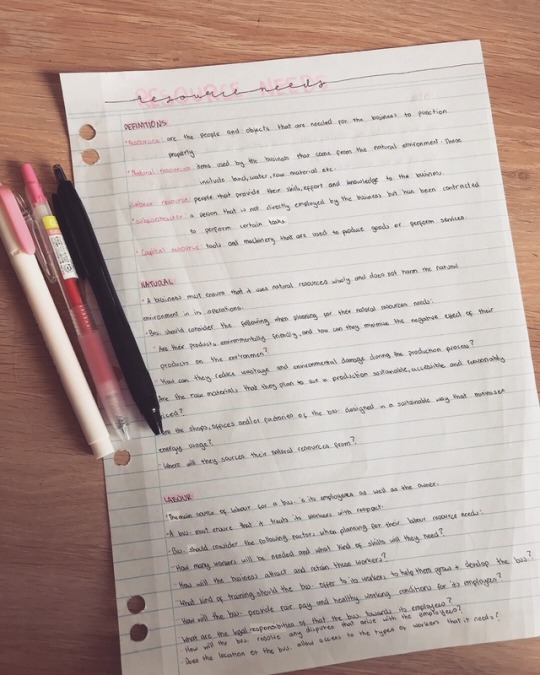 RESOURCE NEEDS
resource needs
DEFINITIONS
• Resources: are the people and objects that are needed for the business to function
properly
• Natural resources: items used by the business that come from the natural environment. These
include land, water, raw material etc.
Labour resource: people that provide their skills, effort and knowledge to the business.
• Subcontractor: a person that is not directly employed by the business but has been contracted
to perform certain tasks
• Capital resource: tools and machinery that are used to produce goods or perform services.
NATURAL
• A business must ensure that it uses natural resources wisely and does not harm the natural
environment in its operations.
• Bus. should consider the following when planning for their natural resources needs:
• Are their products environmentally friendly, and how can they minimise the negative effect of their
products on the environment?
• How can they reduce wastage and environmental damage during the production process?
Are the raw materials that they plan to use in production sustainable, accessible and reasonably
priced?
Are the shops, offices and/or factories of the bus. designed in a sustainable way that minimises
energy usage?
• Where will they sources their natural resources from?
LABOUR
• The main source of labour for a bus. is its employees as well as the owner.
• A bus. must ensure that it treats its workers with respect.
• Bus. should consider the following factors when planning for their labour resource needs:
• How many workers will be needed and what kind of skills will they need?
• How will the business attract and retain these workers?
What kind of training should the bus. offer to its workers to help them grow + develop the bus?
• How will the bus. provide fair pay and healthy working conditions for its employees?
What are the legal responsibilities of that the bus. towards its employees?
How will the bus. resolve any disputes that arise with the employees?
• Does the location of the bus. allow access to the types of workers that it needs?